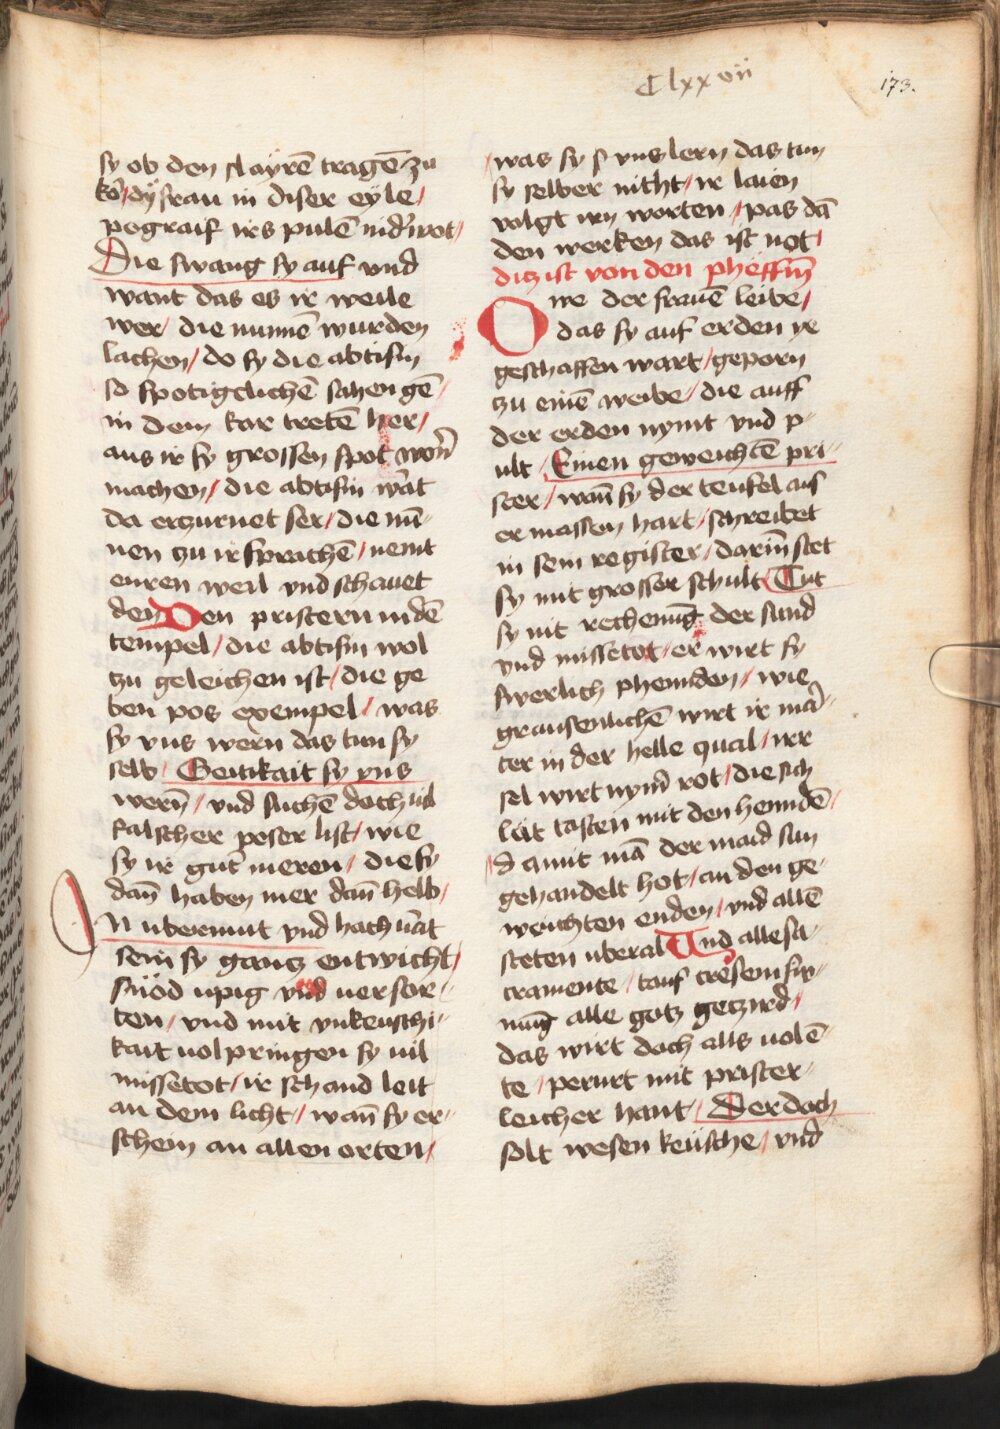 Clxxvii
173.
sy ob den slayrē tragē zu
kor / dy frau in diser eyle /
pegraif irs pulē nid'wot /
Die swang sy auf vnd
want das es ir weile
wer / die nunnē wurden
lachen / do sy die abtisin
so spotigclichē sahen gē
in dem kar tretē her /
aus ir sy grossen spot
machen / die abtisin wart
da erzurnet ser / die nū-
nen zu ir sprachē / nemt
euren weil vnd schauet
den Den pristern in dē
tempel / die abtisin wol
zu geleichen ist / die ge
ben pos exempel / was
sy vns wern das tun sy
selb / Geitikait sy vns
wern̄ / vnd suchē doch vil
falscher poser list / wie
sy ir gut meren / die sy
dan̄ haben mer dan̄ helb /
In ubermut vnd hachuart
sein sy gantz entwicht /
snöd upig vnd uersar-
ten / vnd mit vnkeuschi-
kait uolpringen sy uil
missetot / ir schand leit
an dem licht / wan̄ sy er-
schein an allen orten /
was sy s vns lern das tun
sy selber nicht / ir laien
volgt irn worten / pas dā
den werken das ist not /
ditz ist von den pheffin̄
Owe der frauē leibe /
das sy auf erden ye
geschaffen wart / geporn
zu einē weibe / die auff
der erden nymt vnd p-
ult / Einen geweichtē pri-
ster / wan̄ sy der teufel aus
ermassen hart / schreibet
in sein register / darin̄ stet
sy mit grosser schult Tut
sy nit rechenung der sund
vnd missetot / er wirt sy
swerlich phemden / wie
grausenlichē wirt ir mar-
ter in der helle qual / irr
sel wirt nym̄ rot / die sich
lät tasten mit den henndē /
damit mā der maid sun
gehandelt hot / an den ge-
weichten enden / vnd allē
steten uberal Vnd alle sa-
cramente / tauf cresem fir-
mūg alle gotz getzird /
das wirt doch alls uolē-
te / perurt mit prister-
leicher hant / Der doch
solt wesen keüsche / vnd